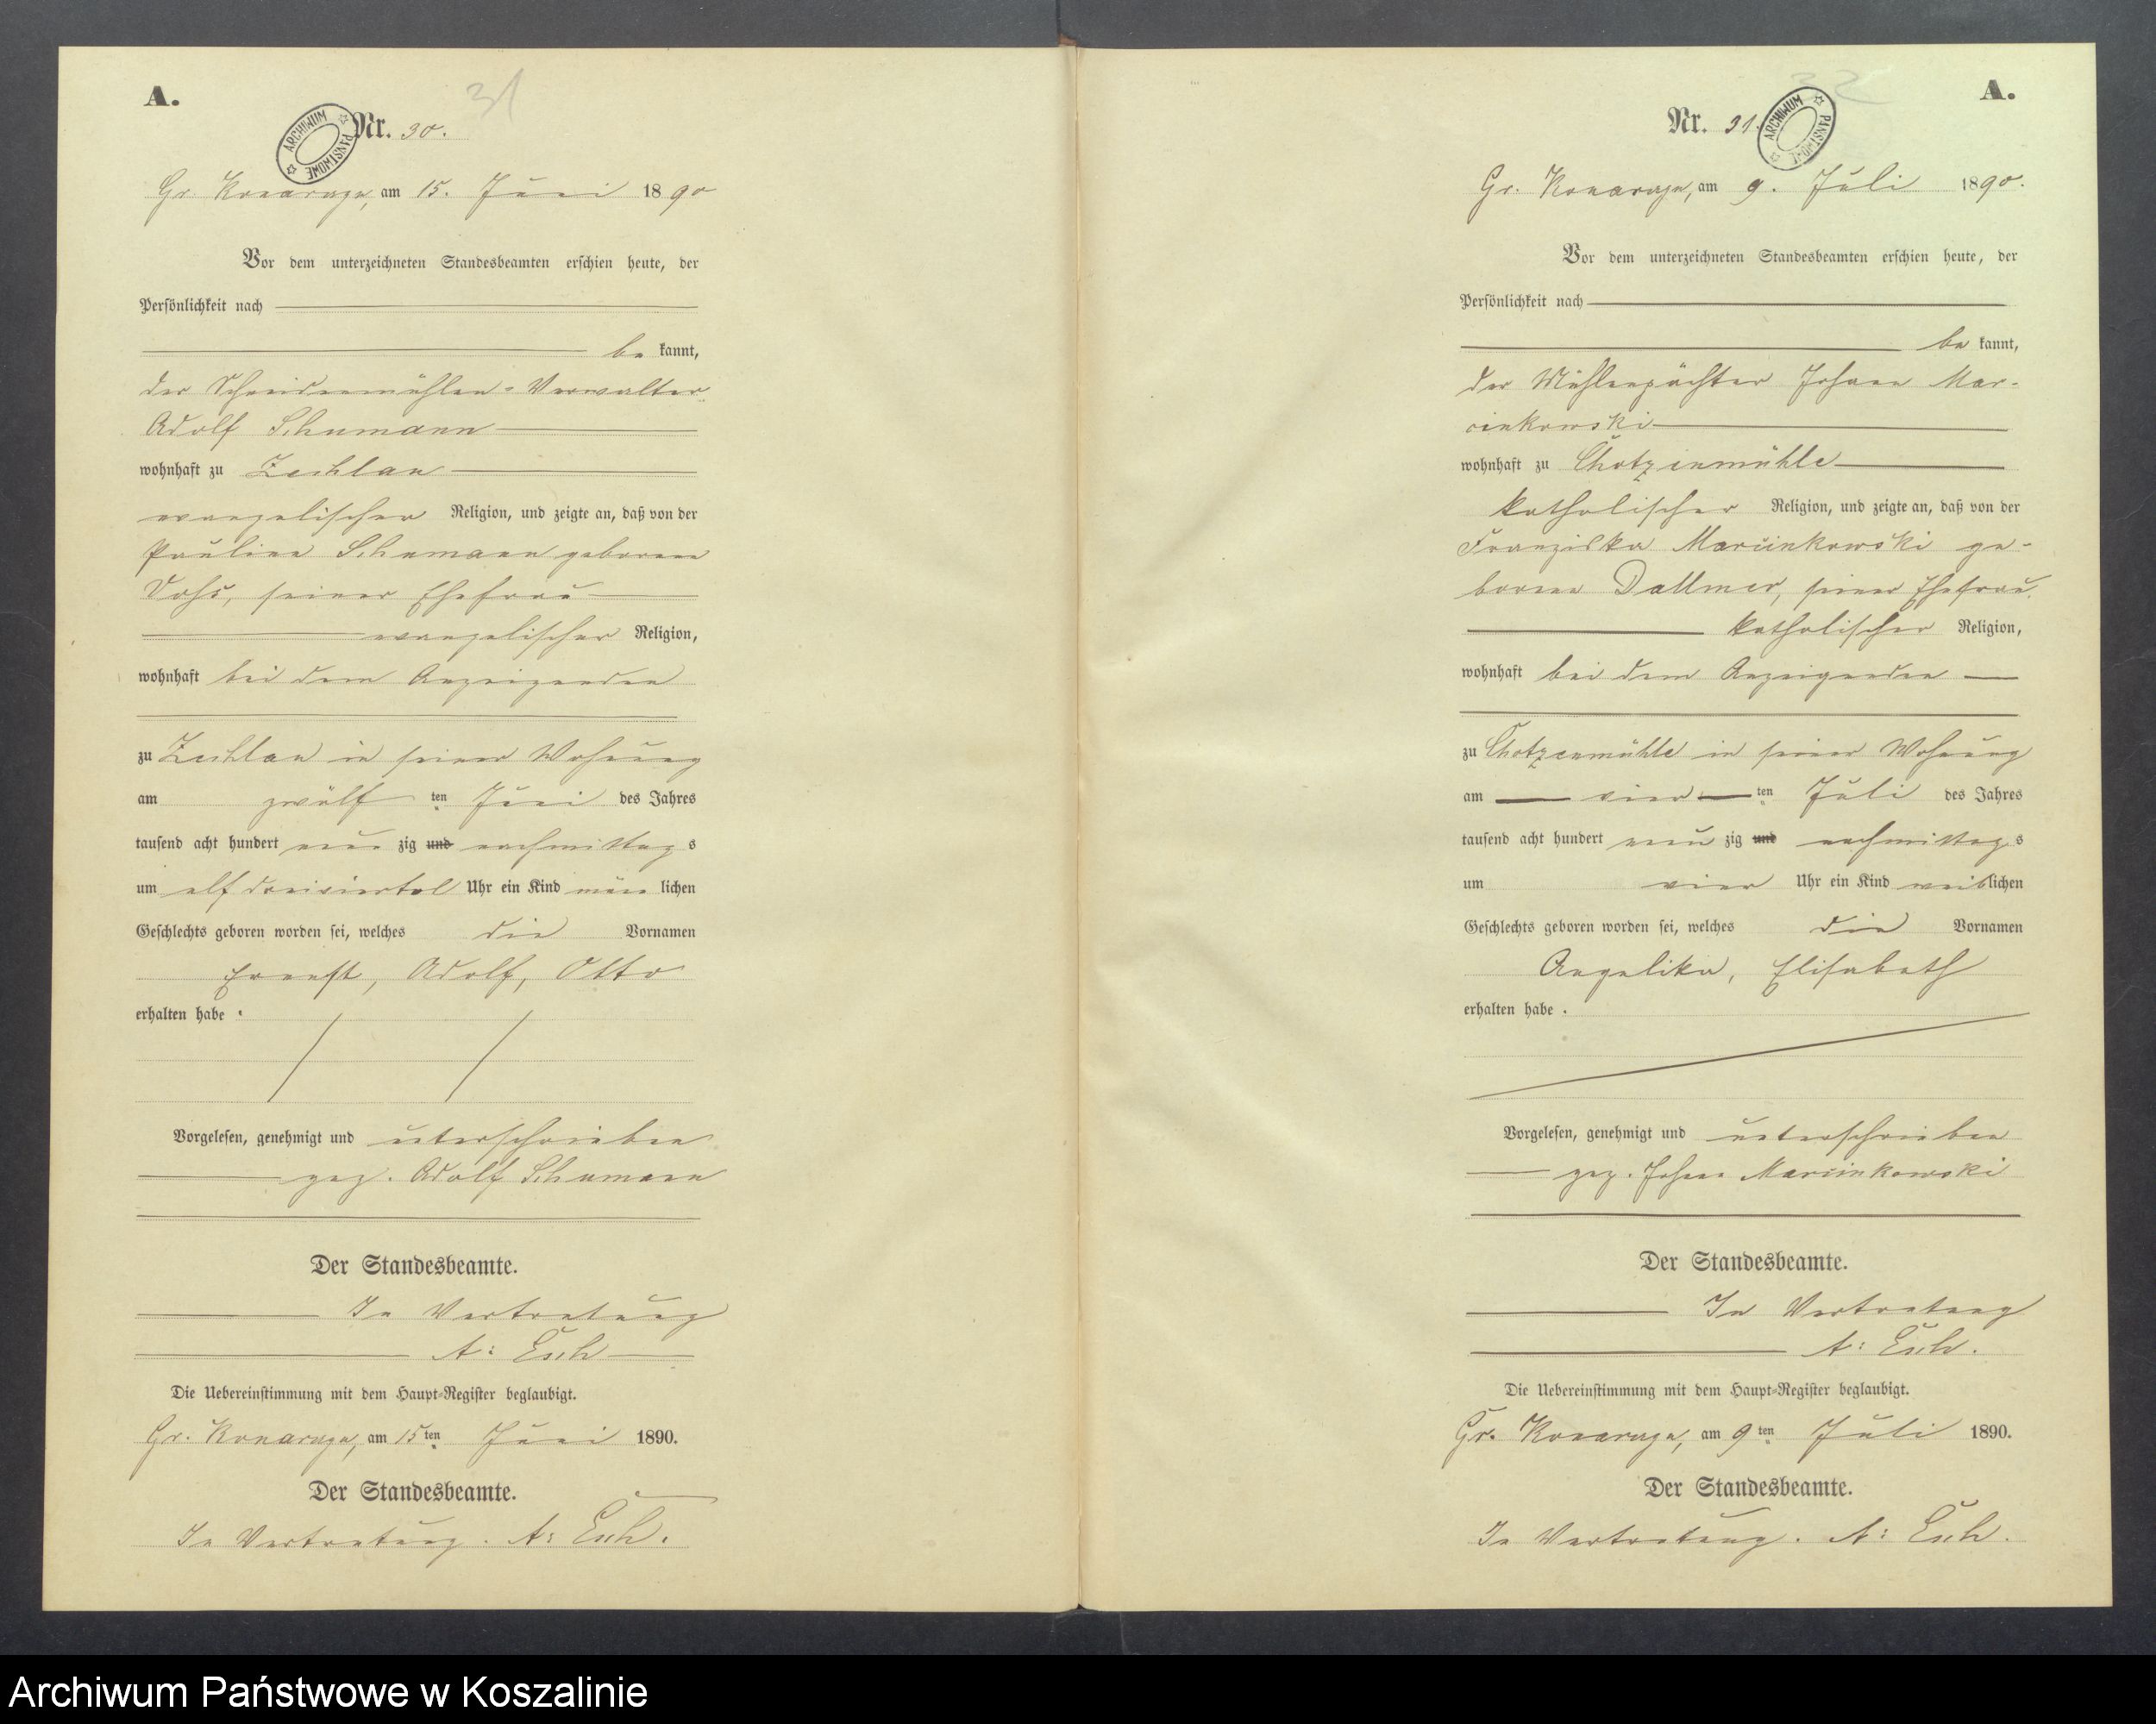 A.
31
ARCHIWUM PAŃSTWOWE
Nr. 30.
Gr. Konarczyn, am 15. Juni 1890
Vor dem unterzeichneten Standesbeamten erschien heute, der
Persönlichkeit nach
be kannt,
der Schneidemühlen-Verwalter
Adolf Schumann
wohnhaft zu Zechlau
evangelischer Religion, und zeigte an, daß von der
Pauline Schumann geborene
Vohs, seiner Ehefrau
evangelischer Religion,
wohnhaft bei dem Anzeigenden
zu Zechlau in seiner Wohnung
am zwölf ten Juni des Jahres
tausend acht hundert neun zig und nachmittag s
um elf dreiviertel Uhr ein Kind männ lichen
Geschlechts geboren worden sei, welches die Vornamen
Ernst, Adolf, Otto
erhalten habe.
Vorgelesen, genehmigt und unterschrieben
gez. Adolf Schumann
Der Standesbeamte.
In Vertretung
A: Esch
Die Uebereinstimmung mit dem Haupt-Register beglaubigt.
Gr. Konarczyn, am 15ten Juni 1890.
Der Standesbeamte.
In Vertretung. A: Esch.
32
A.
Nr. 31.
ARCHIWUM PAŃSTWOWE
Gr. Konarczyn, am 9. Juli 1890.
Vor dem unterzeichneten Standesbeamten erschien heute, der
Persönlichkeit nach
be kannt,
der Mühlenpächter Johann Mar-
cinkowski
wohnhaft zu Chotzenmühle
katholischer Religion, und zeigte an, daß von der
Franziska Marcinkowski ge-
borene Dallmer, seiner Ehefrau
katholischer Religion,
wohnhaft bei dem Anzeigenden
zu Chotzenmühle in seiner Wohnung
am vier ten Juli des Jahres
tausend acht hundert neun zig und nachmittag s
um vier Uhr ein Kind weiblichen
Geschlechts geboren worden sei, welches die Vornamen
Angelika, Elisabeth
erhalten habe.
Vorgelesen, genehmigt und unterschrieben
gez. Johann Marcinkowski
Der Standesbeamte.
In Vertretung
A: Esch.
Die Uebereinstimmung mit dem Haupt-Register beglaubigt.
Gr. Konarczyn, am 9ten Juli 1890.
Der Standesbeamte.
In Vertretung. A: Esch.
Archiwum Państwowe w Koszalinie